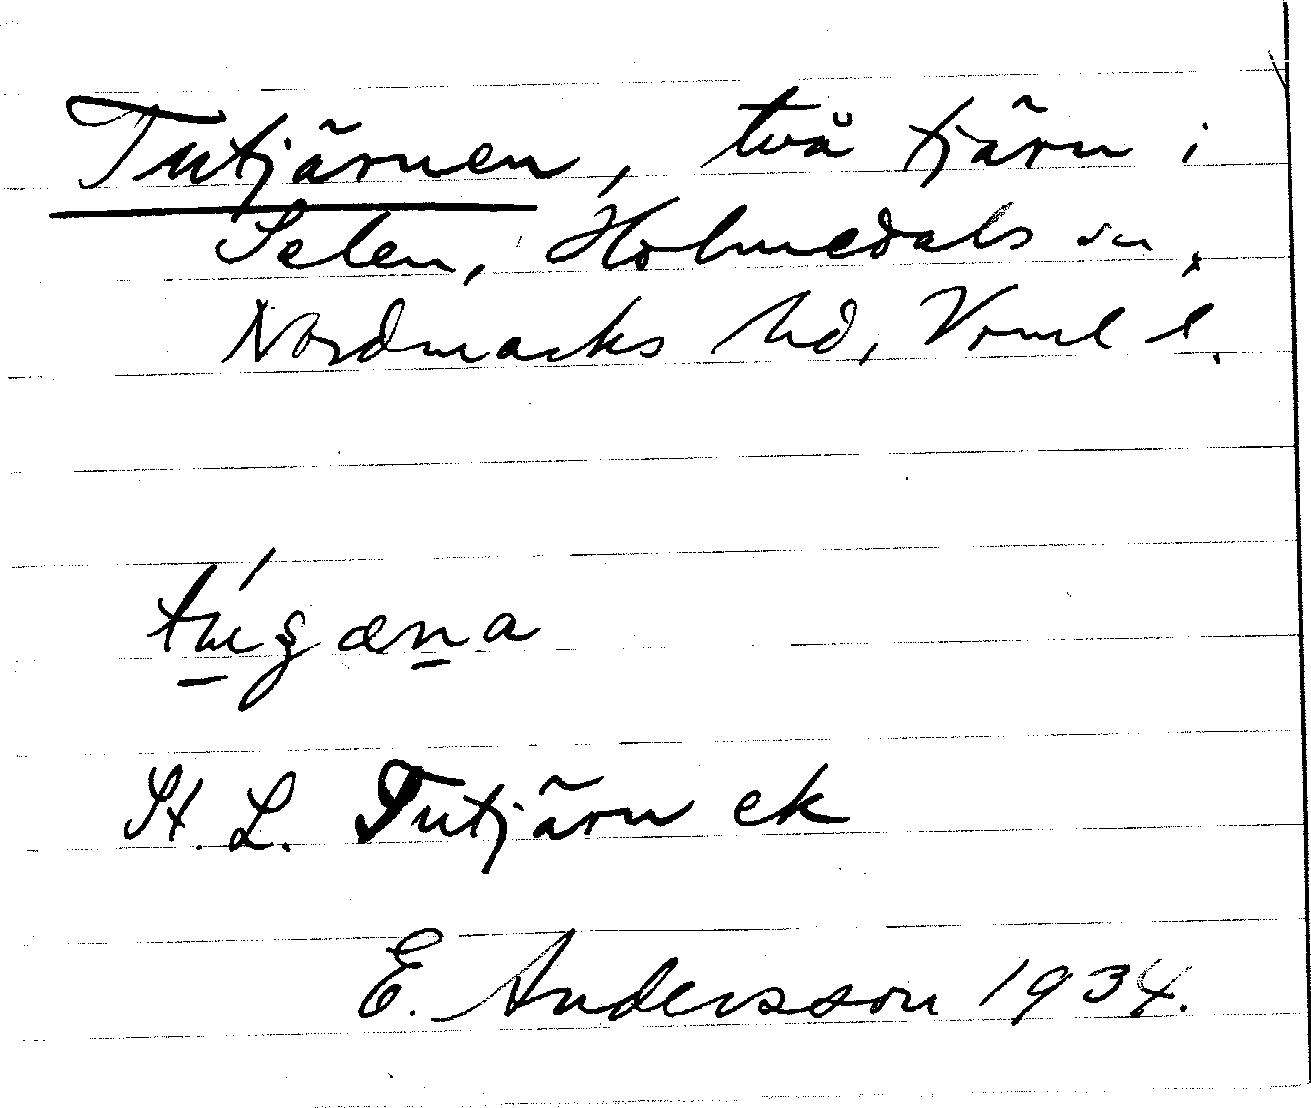 Tutjärnen, två tjärn i
Selen, Holmedals sn,
Nordmarks hd, Vrml l.
St. L. Tutjärn ek
E. Andersson 1934.